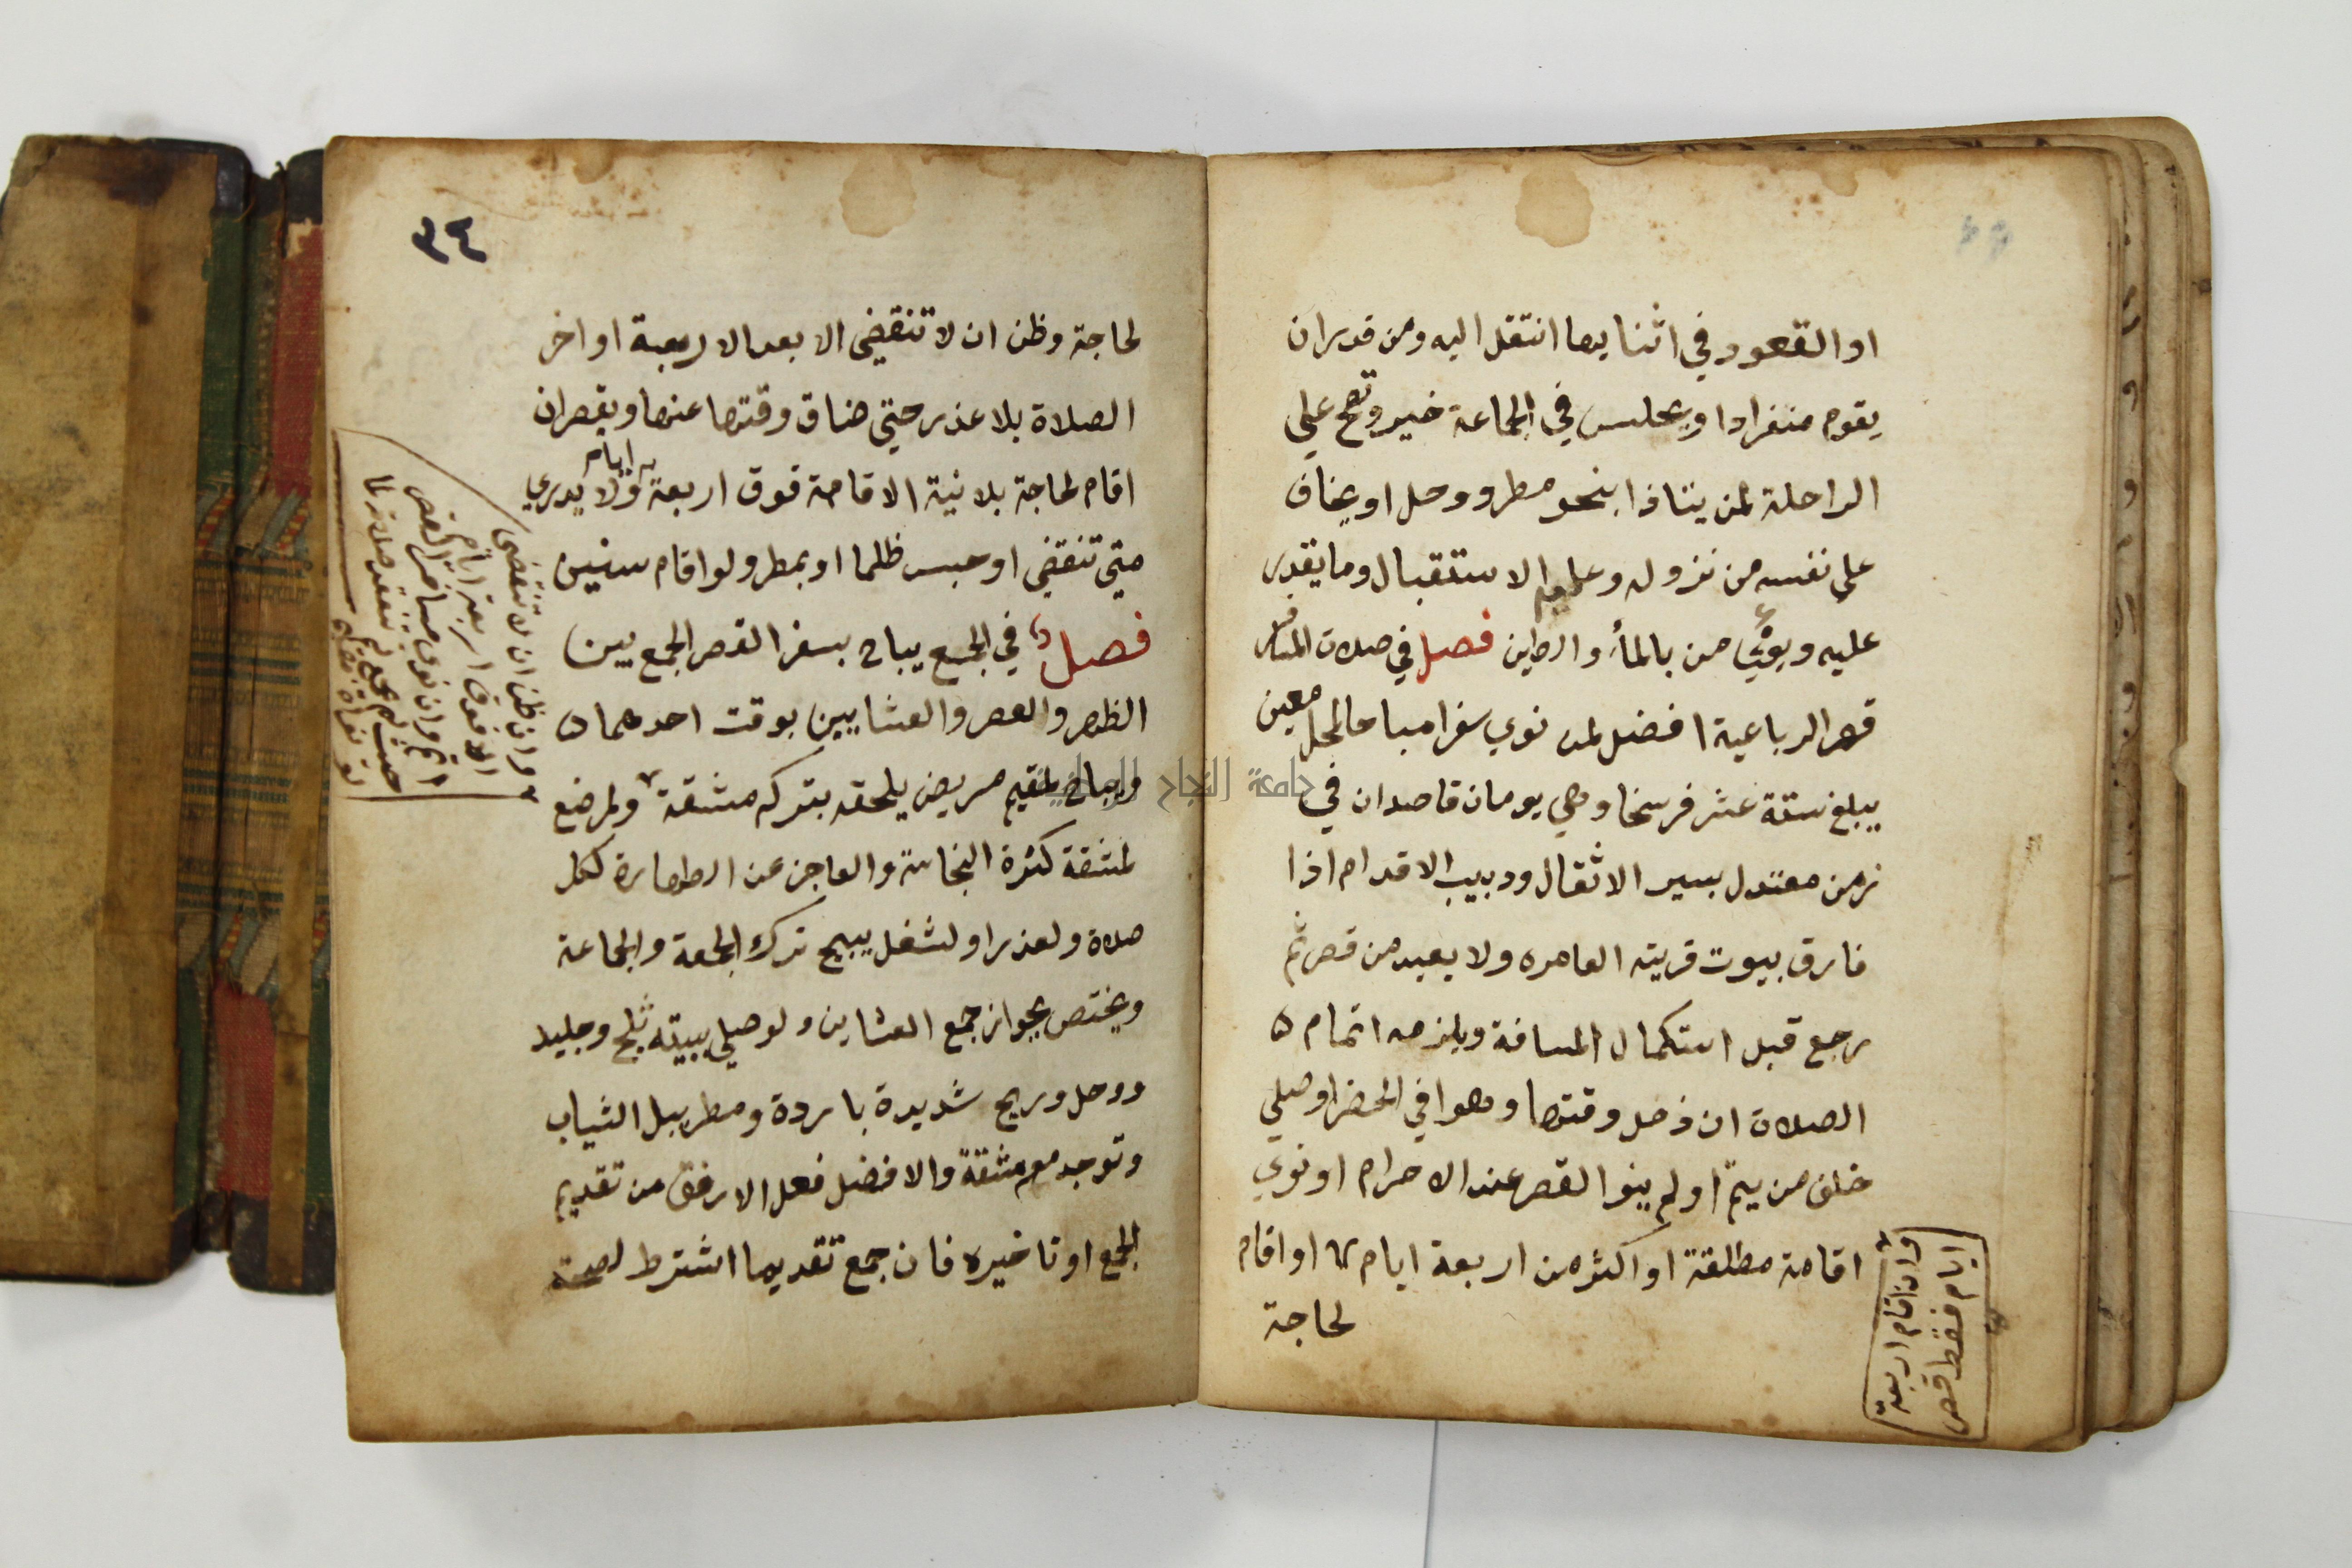 او القعود في اثنايها انتقل اليه ومن قدر ان
يقوم منفرادا ويجلس في الجماعة خير وتصح علي
الراحلة لمن يتاذا بنحو مطر ووحل او يخاف
علي نفسه من نزوله وعليه الاستقبال وما يقدر
عليه ويومي من بالمأ والطين فصل في صلات المسافر
قصر الرباعية افضل لمن نوي سفرا مباحا لمحل معين
يبلغ ستة عشر فرسخا وهي يومان قاصدان في
زمن معتدل بسير الاثقال ودبيب الاقدام اذا
فارق بيوت قريته العامره ولا يعيد من قصر ثم
رجع قبل استكمال المسافة ويلزمه اتمام
الصلات ان دخل وقتها وهوا في الحضر او صلي
خلف من يتم او لم ينوا القصر عند الاحرام او نوي
اقامة مطلقة او اكثر من اربعة ايام او اقام
لحاجة
وان اقام اربعة
ايام فقط قصر
٣٤
لحاجة وظن ان لا تنقضي الا بعد الاربعة او اخر
الصلاة بلا عذر حتي ضاق وقتها عنها ويقصر ان
اقام لحاجة بلا نية الاقامة فوق اربعة ايام ولا يدري
متي تنقضي او حبس ظلما او بمطر ولو اقام سنين
فصل في الجمع يباح بسفر القصر الجمع بين
الظهر والعصر والعشايين بوقت احدهما
ويباح لمقيم مريض يلحقه بتركه مشقة ولمرضع
لمشقة كثرة النجاسة والعاجز عن الطهارة لكل
صلاة ولعذر او لشغل يبيح ترك الجمعة والجماعة
ويختص بجواز جمع العشاين ولو صلي ببيته ثلج وجليد
ووحل وريح شديدة باردة ومطر يبل الثياب
وتوجد معه مشقة والافضل فعل الارفق من تقديم
الجمع او تاخيره فان جمع تقديما اشترط لصحة
وان ظن ان لا تنقضي
الا فوق اربعة ايام
اتم وان نوي مسافر القصر
حيث لم يبح لم تنعقد صلاته كما
لو نواه مقيم
جامعة النجاح الوطنية